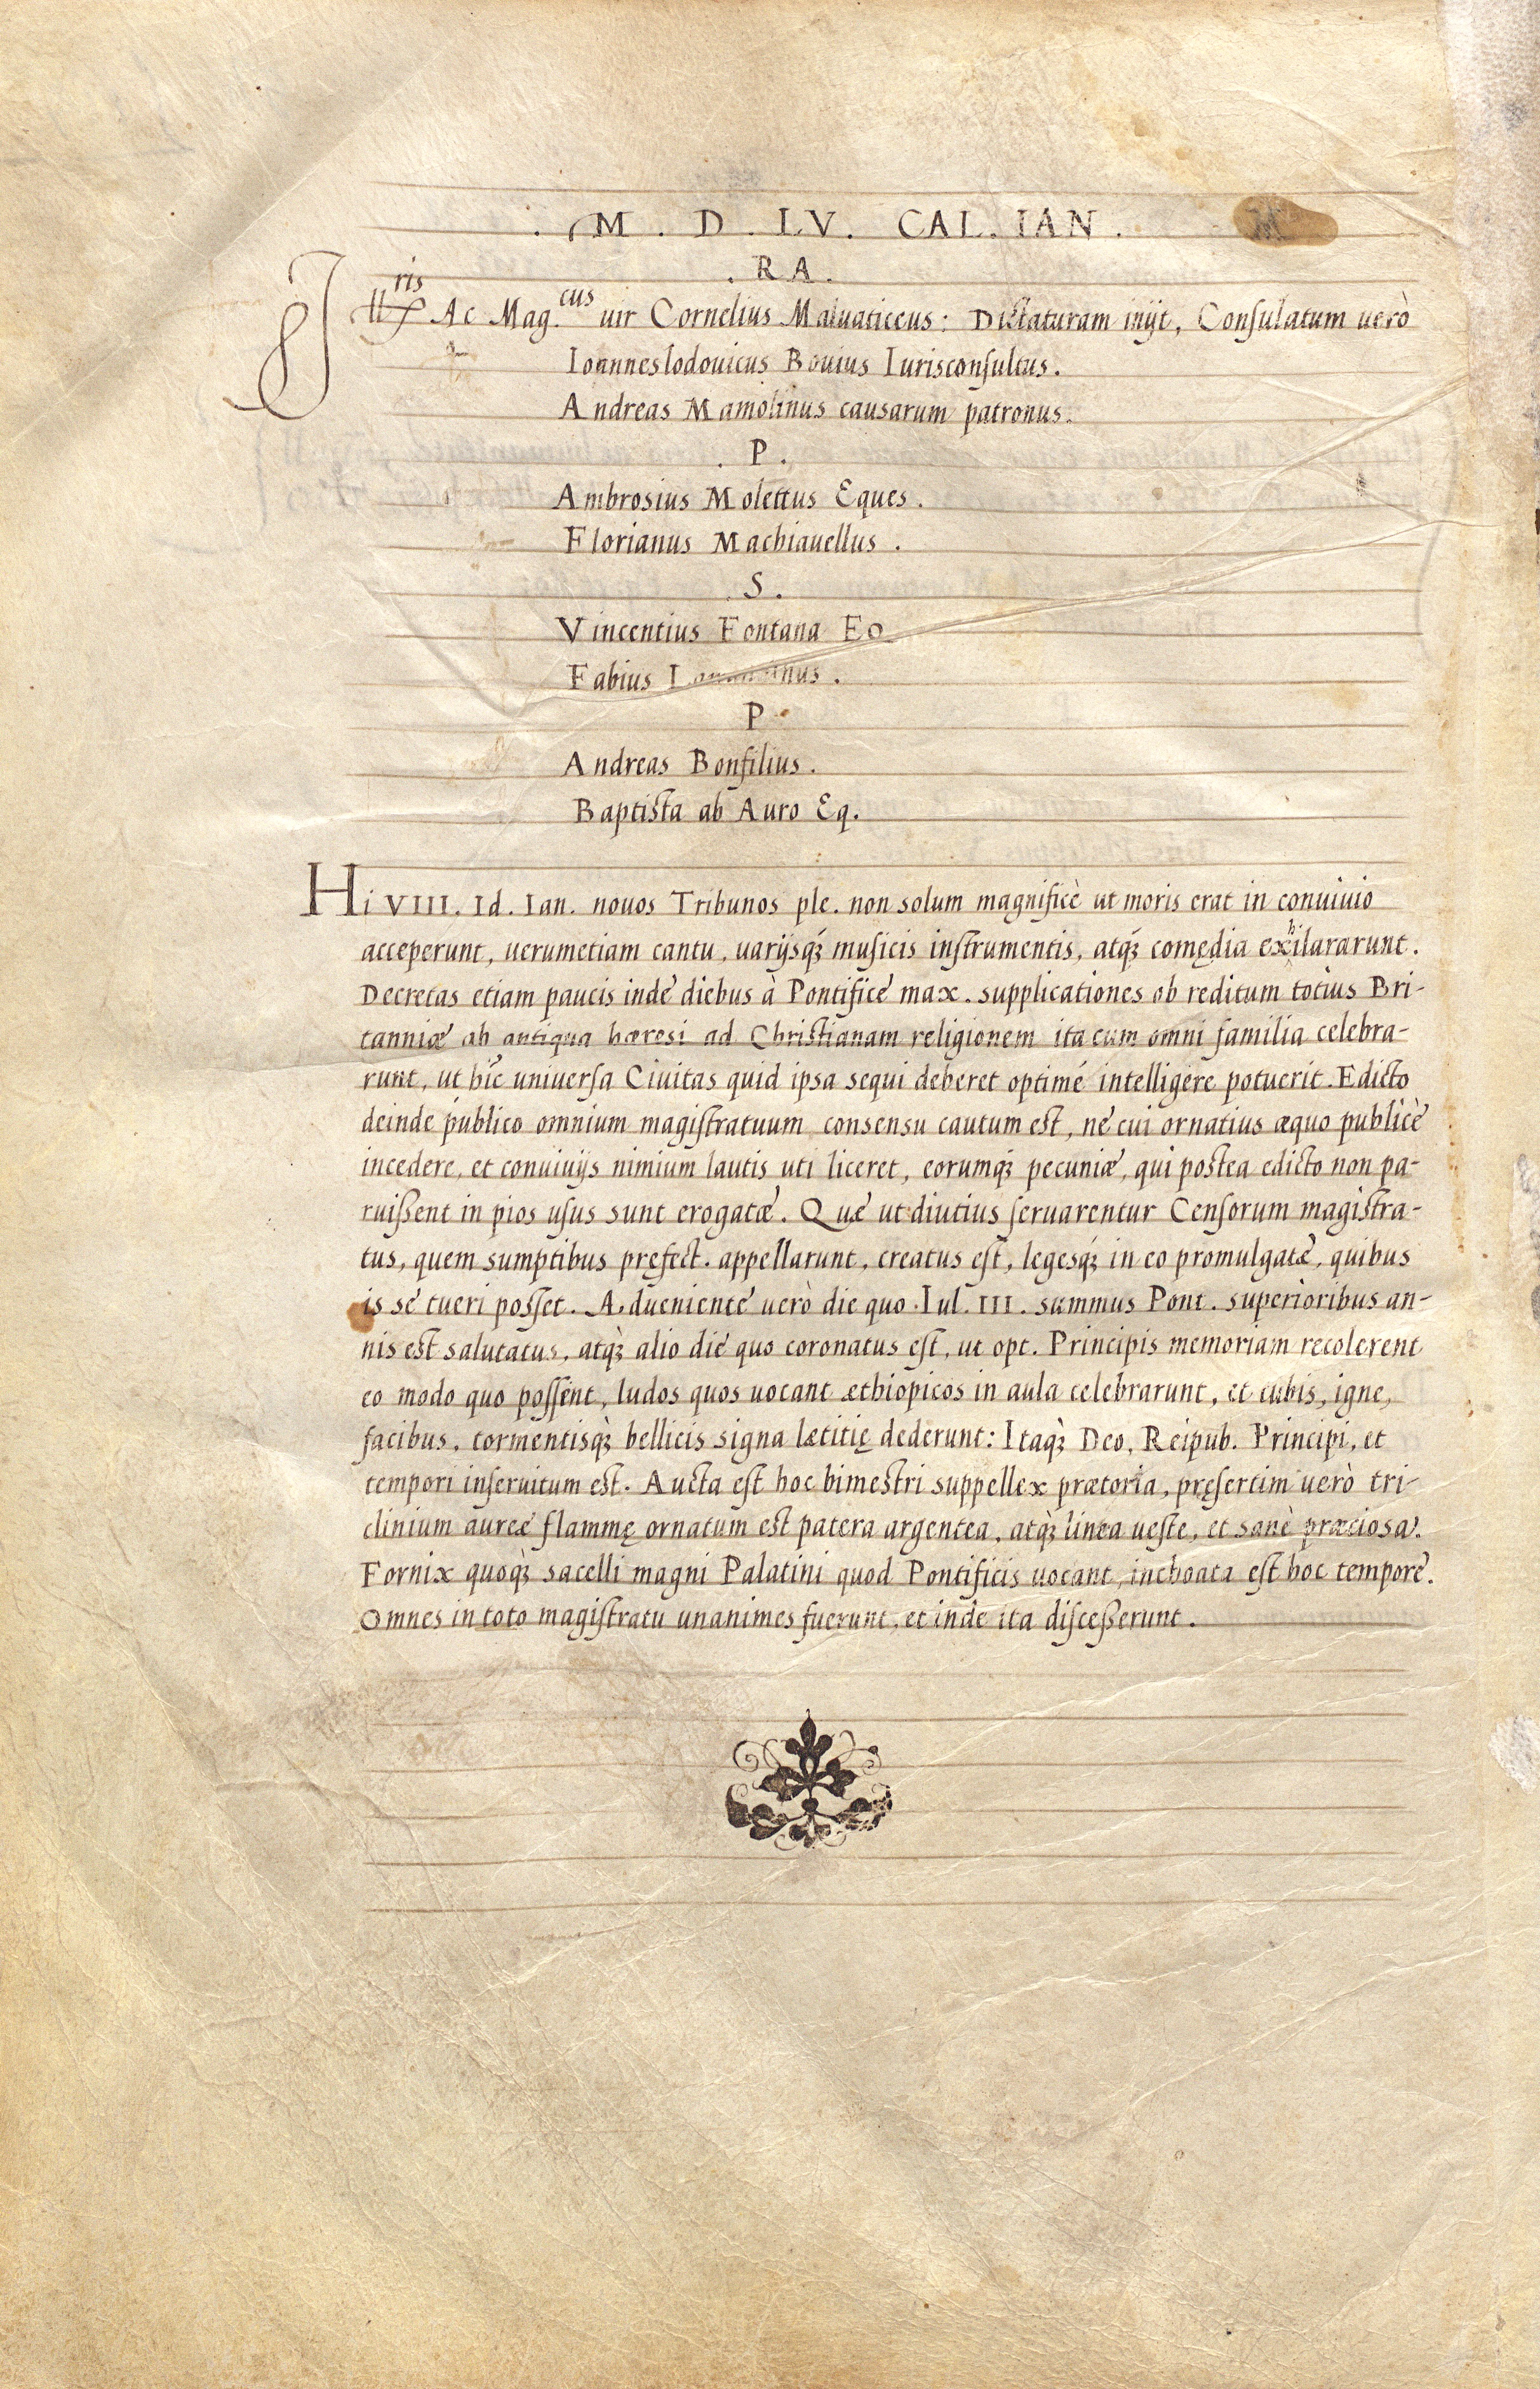 . M . D . LV . CAL . IAN .
. R A .
Illris Ac Mag.cus uir Cornelius Maluaticcus: Dictaturam inijt, Consulatum uerò
Ioanneslodouicus Bouius Iurisconsultus.
Andreas Mamolinus causarum patronus.
. P .
Ambrosius Molettus Eques.
Florianus Machiauellus.
. S .
Vincentius Fontana
Fabius
P.
Andreas Bonfilius.
Baptista ab Auro Eq.
Hi VIII. Id. Ian. nouos Tribunos ple. non solum magnificè ut moris erat in conuiuio
acceperunt, uerumetiam cantu, uarijsq́ꝫ musicis instrumentis, atq́ꝫ comędia exhilararunt.
Decretas etiam paucis inde diebus à Pontifice max. supplicationes ob reditum totius Bri-
tanniæ ab antiqua hæresi ad Christianam religionem ita cum omni familia celebra-
runt, ut hic uniuersa Ciuitas quid ipsa sequi deberet optimé intelligere potuerit. Edicto
deinde publico omnium magistratuum consensu cautum est, ne cui ornatius æquo publicè
incedere, et conuiuijs nimium lautis uti liceret, eorumq́ꝫ pecuniæ, qui postea edicto non pa-
ruißent in pios usus sunt erogatæ. Quæ ut diutius seruarentur Censorum magistra-
tus, quem sumptibus pręfect. appellarunt, creatus est, legesq́ꝫ in eo promulgatæ, quibus
is se tueri posset. Adueniente uerò die quo Iul. III. summus Pont. superioribus an-
nis est salutatus, atq́ꝫ alio die quo coronatus est, ut opt. Principis memoriam recolerent
eo modo quo possent, ludos quos uocant æthiopicos in aula celebrarunt, et tubis, igne,
facibus, tormentisq́ꝫ bellicis signa lætitię dederunt: Itaq́ꝫ Deo, Reipub. Principi, et
tempori inseruitum est. Aucta est hoc bimestri suppellex prætoria, pręsertim uerò tri-
clinium aureæ flammę ornatum est patera argentea, atq́ꝫ linea ueste, et sanè præciosa.
Fornix quoq́ꝫ sacelli magni Palatini quod Pontificis uocant, inchoata est hoc tempore.
Omnes in toto magistratu unanimes fuerunt, et inde ita disceßerunt.